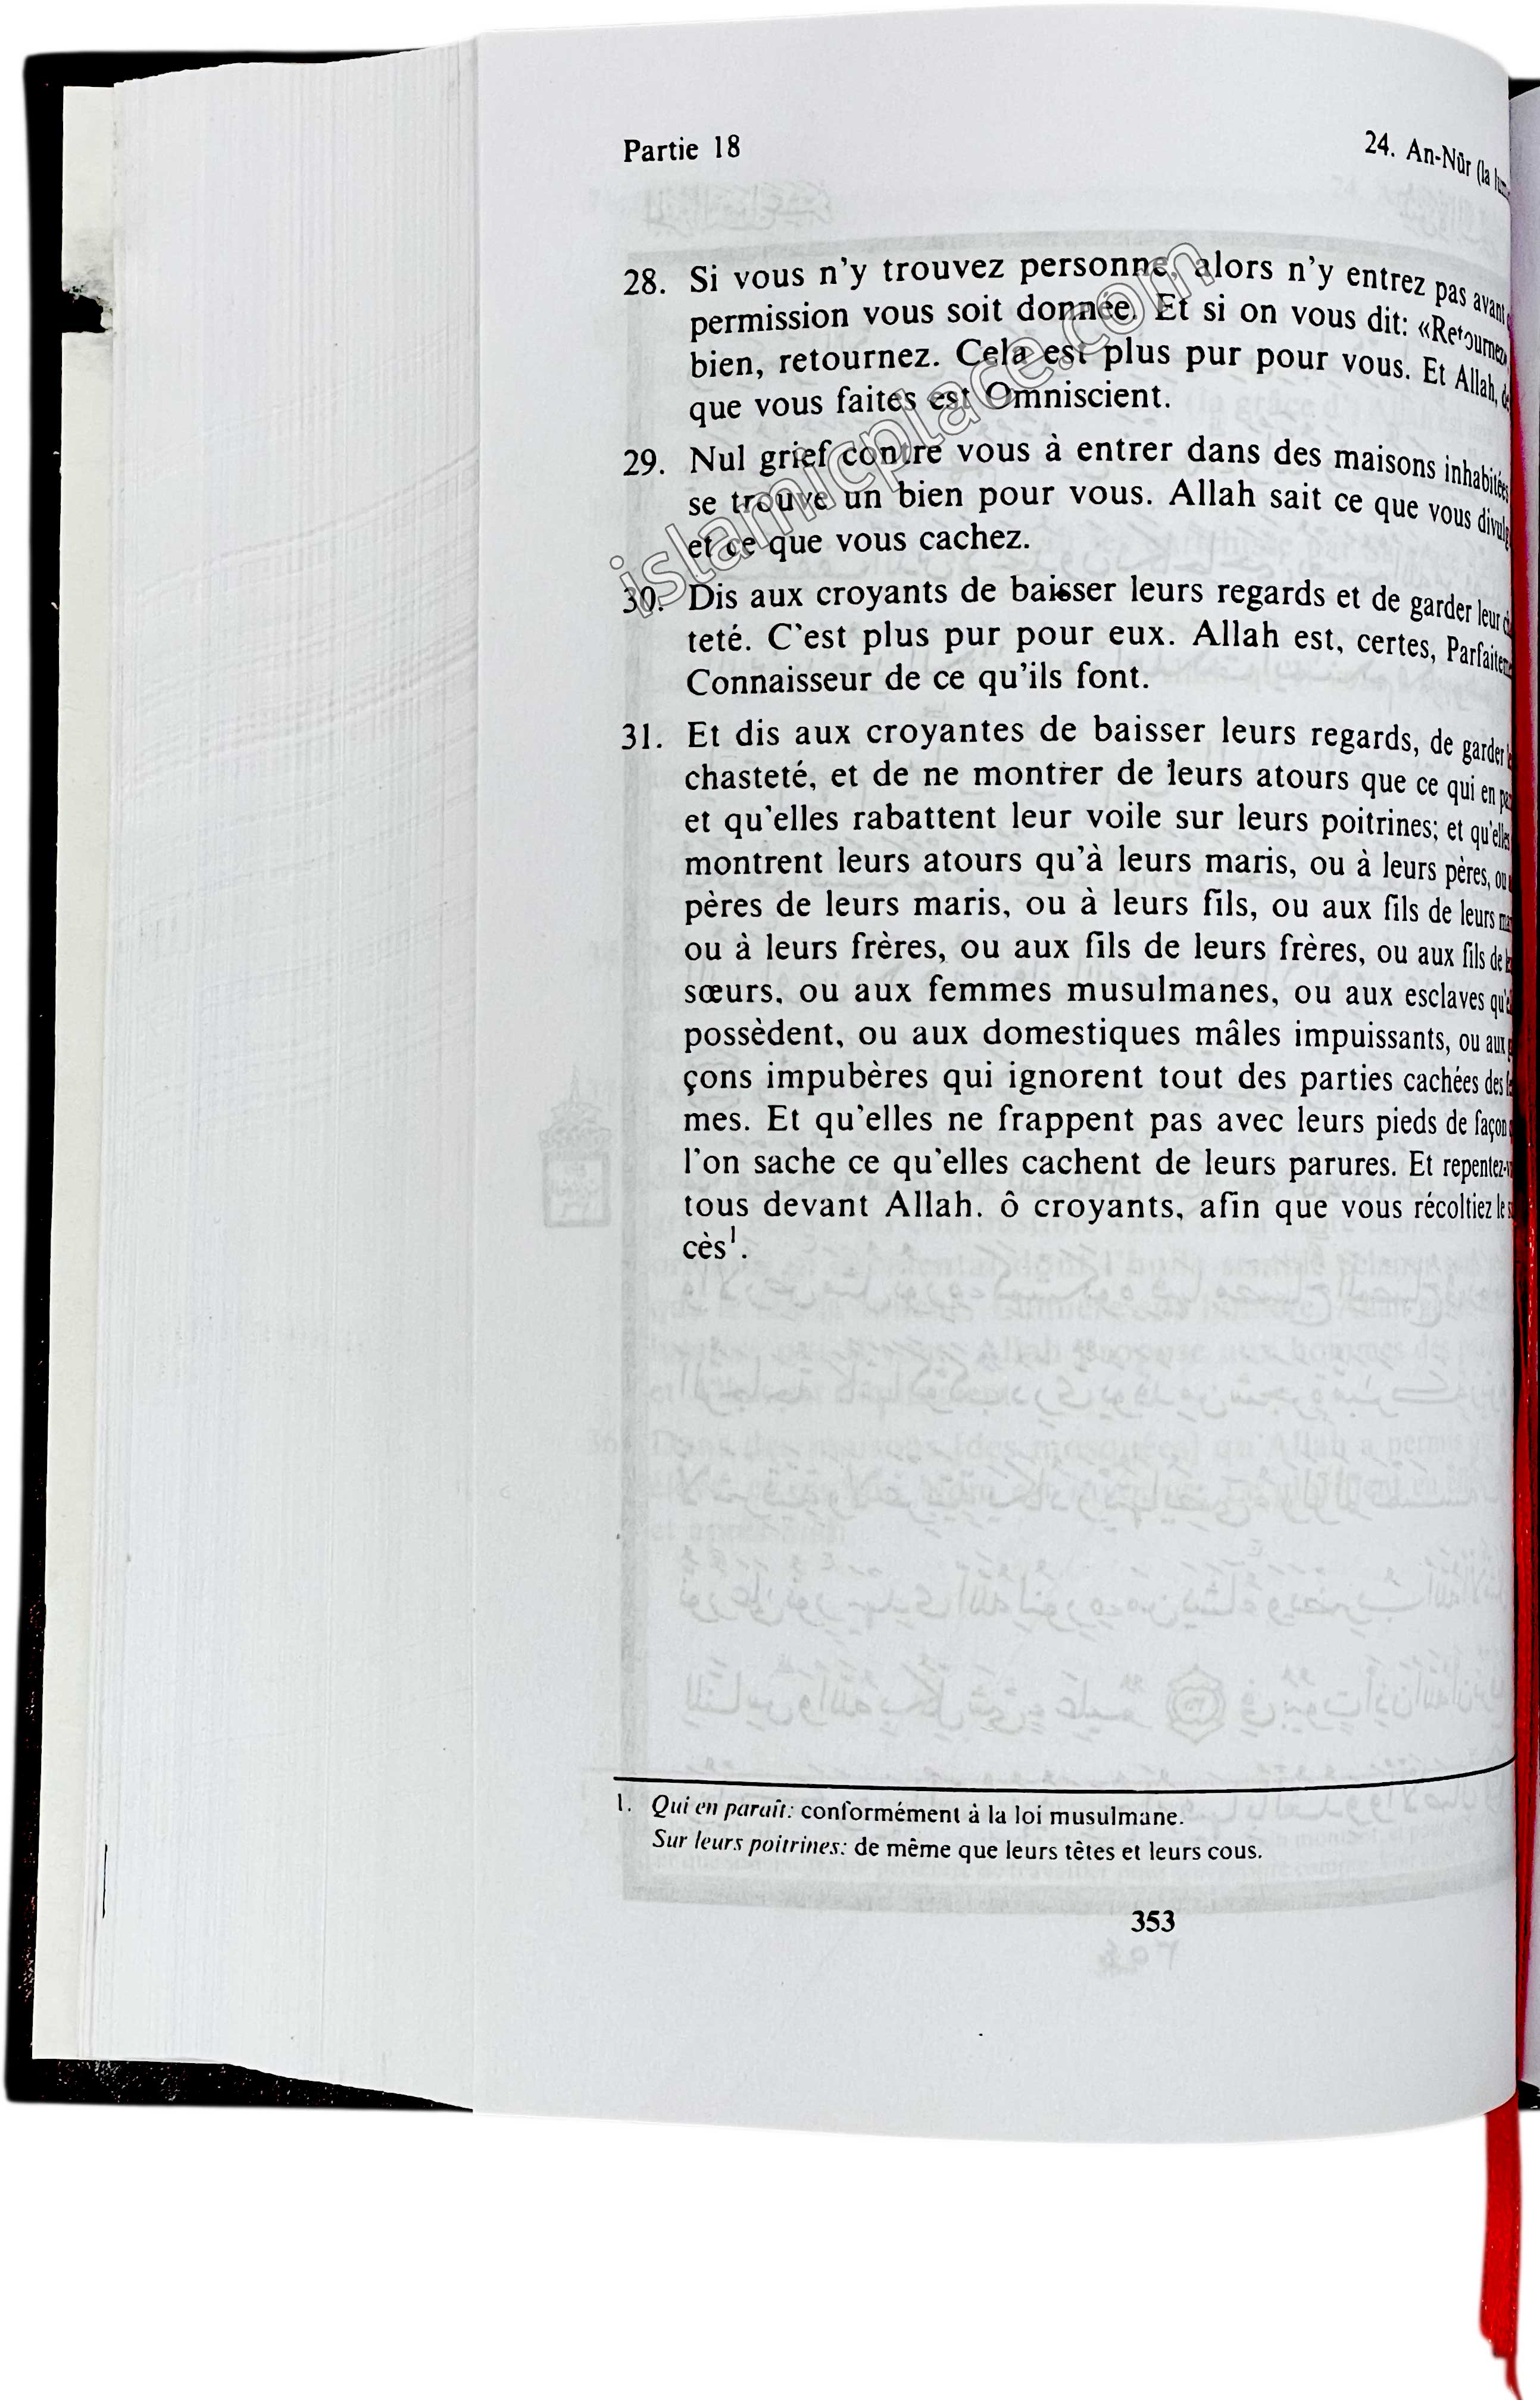 Partie 18
24. An-Nûr (la
28. Si vous n'y trouvez personne, alors n'y entrez pas avant
permission vous soit donnée. Et si on vous dit: «Retournez»,
bien, retournez. Cela est plus pur pour vous. Et Allah, de
que vous faites est Omniscient.
29. Nul grief contre vous à entrer dans des maisons inhabitées
se trouve un bien pour vous. Allah sait ce que vous divulg
et ce que vous cachez.
30. Dis aux croyants de baisser leurs regards et de garder leur
teté. C'est plus pur pour eux. Allah est, certes, Parfaiteme
Connaisseur de ce qu'ils font.
31. Et dis aux croyantes de baisser leurs regards, de garder
chasteté, et de ne montrer de leurs atours que ce qui en
et qu'elles rabattent leur voile sur leurs poitrines; et qu'elles
montrent leurs atours qu'à leurs maris, ou à leurs pères, ou
pères de leurs maris, ou à leurs fils, ou aux fils de leurs
ou à leurs frères, ou aux fils de leurs frères, ou aux fils de
sœurs, ou aux femmes musulmanes, ou aux esclaves
possèdent, ou aux domestiques mâles impuissants, ou aux
çons impubères qui ignorent tout des parties cachées des
mes. Et qu'elles ne frappent pas avec leurs pieds de façon
l'on sache ce qu'elles cachent de leurs parures. Et repentez-
tous devant Allah. ô croyants, afin que vous récoltiez le
cès¹.
1. Qui en paraît: conformément à la loi musulmane.
Sur leurs poitrines: de même que leurs têtes et leurs cous.
353
islamicplace.com